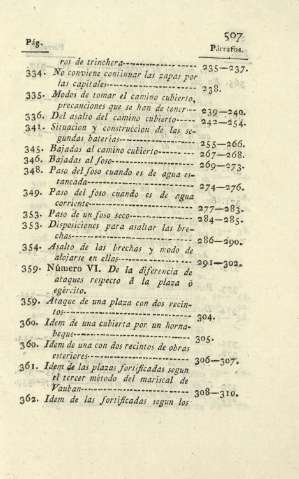 507
Pág. Párrafos.
ros de trinchera-------------- 235—237.
334. No conviene continuar las zapas por
las capitales------------------ 238.
335. Modos de tomar el camino cubierto,
precauciones que se han de tener-- 239—240.
336. Del asalto del camino cubierto---- 242—254.
341. Situacion y construccion de las se-
gundas baterias--------------- 255—266.
345. Bajadas al camino cubierto------- 267—268.
346. Bajadas al foso----------------- 269—273.
348. Paso del foso quando es de agua es-
tancada---------------------- 274—276.
349. Paso del foso cuando es de agua
corriente--------------------- 277—283.
353. Paso de un foso seco------------- 284—285.
353. Disposiciones para asaltar las bre-
chas------------------------- 286—290.
354. Asalto de las brechas y modo de
alojarse en ellas-------------- 291—302.
359. Número VI. De la diferencia de
ataques respecto á la plaza ó
egército.
359. Ataque de una plaza con dos recin-
tos-------------------------- 304.
360. Idem de una cubierta por un horna-
beque------------------------ 305.
360. Idem de una con dos recintos de obras
esteriores--------------------- 306—307.
361. Idem de las plazas fortificadas segun
el tercer método del mariscal de
Vauban----------------------- 308—310.
362. Idem de las fortificadas segun los